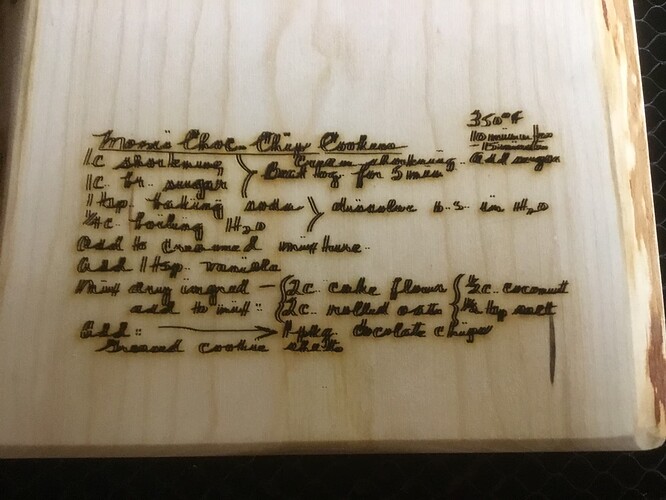 350°F
Mom's Choc. Chip Cookies
10 minutes to
- 15 minutes
1 c shortening } Cream shortening. Add sugar
1 c. br. sugar } Beat tog. for 5 min
1 tsp. baking soda } dissolve b.s. in H2O
1/4 c. boiling H2O
Add to creamed mixture.
Add 1 tsp. vanilla
Mix dry ingred — { 2 c. cake flour { 1/2 c. coconut
add to mix: { 2 c. rolled oats { 1/2 tsp salt
Add: → 1 pkg. chocolate chips
Greased cookie sheets